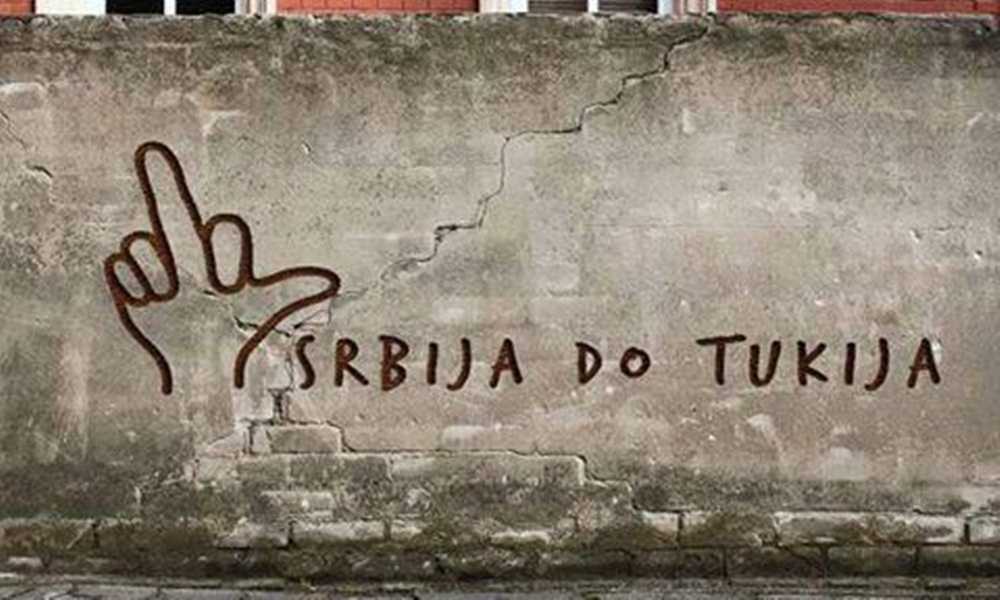 SRBIJA DO TUKIJA